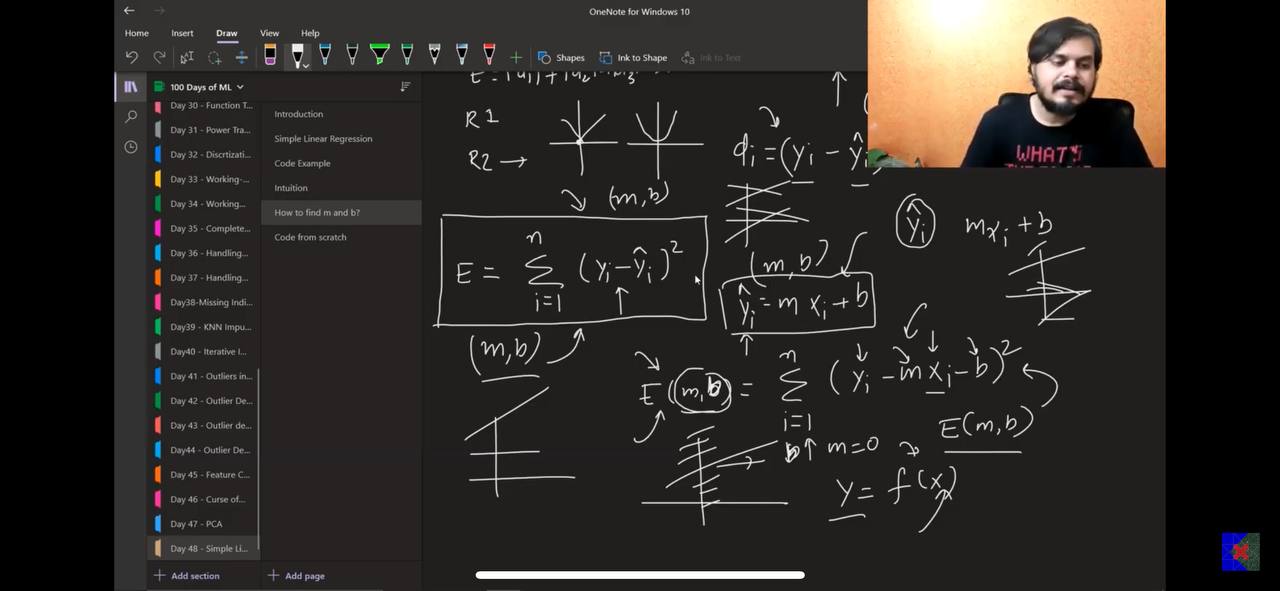 OneNote for Windows 10
Home Insert Draw View Help
Shapes Ink to Shape Ink to Text
100 Days of ML
Day 30 - Function T...
Day 31 - Power Tra...
Day 32 - Discrtizati...
Day 33 - Working-...
Day 34 - Working...
Day 35 - Complete...
Day 36 - Handling...
Day 37 - Handling...
Day38-Missing Indi...
Day39 - KNN Impu...
Day40 - Iterative I...
Day 41 - Outliers in...
Day 42 - Outlier De...
Day 43 - Outlier de...
Day44 - Outlier De...
Day 45 - Feature C...
Day 46 - Curse of...
Day 47 - PCA
Day 48 - Simple Li...
Add section
Introduction
Simple Linear Regression
Code Example
Intuition
How to find m and b?
Code from scratch
Add page
R1
R2 →
(m,b)
E = Σ i=1 n (yi - ŷi)²
(m,b)
di = (yi - ŷi
(m,b)
ŷi = m xi + b
ŷi mxi + b
E(m,b) = Σ i=1 n (yi - mxi - b)²
b↑ m=0
E(m,b)
y = f(x)
WHAT'S